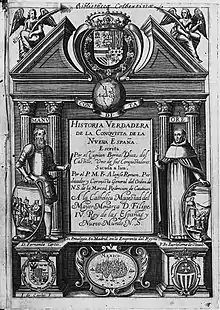 Bibliotheca Colbertina
MANV
ORE
HISTORIA VERDADERA
DE LA CONQVISTA DE LA
NVEVA ESPAÑA.
Escrita
Por el Capitan Bernal Diaz, del
Castillo, Vno de sus Conquistadores.
Sacada a luz,
Por el P. M. Fr. Alonso Remon, Pre-
dicador y Coronista General del Orden de
N. S. de la Merced, Redencion de Cautivos.
A la Catholica Magestad del
Mayor Monarca D. Filipe
IV. Rey de las Españas y
Nuevo Mundo N. S.
Con Privilegio En Madrid, en la Emprenta del Reyno
D. Fernando Cortes
MEXICO